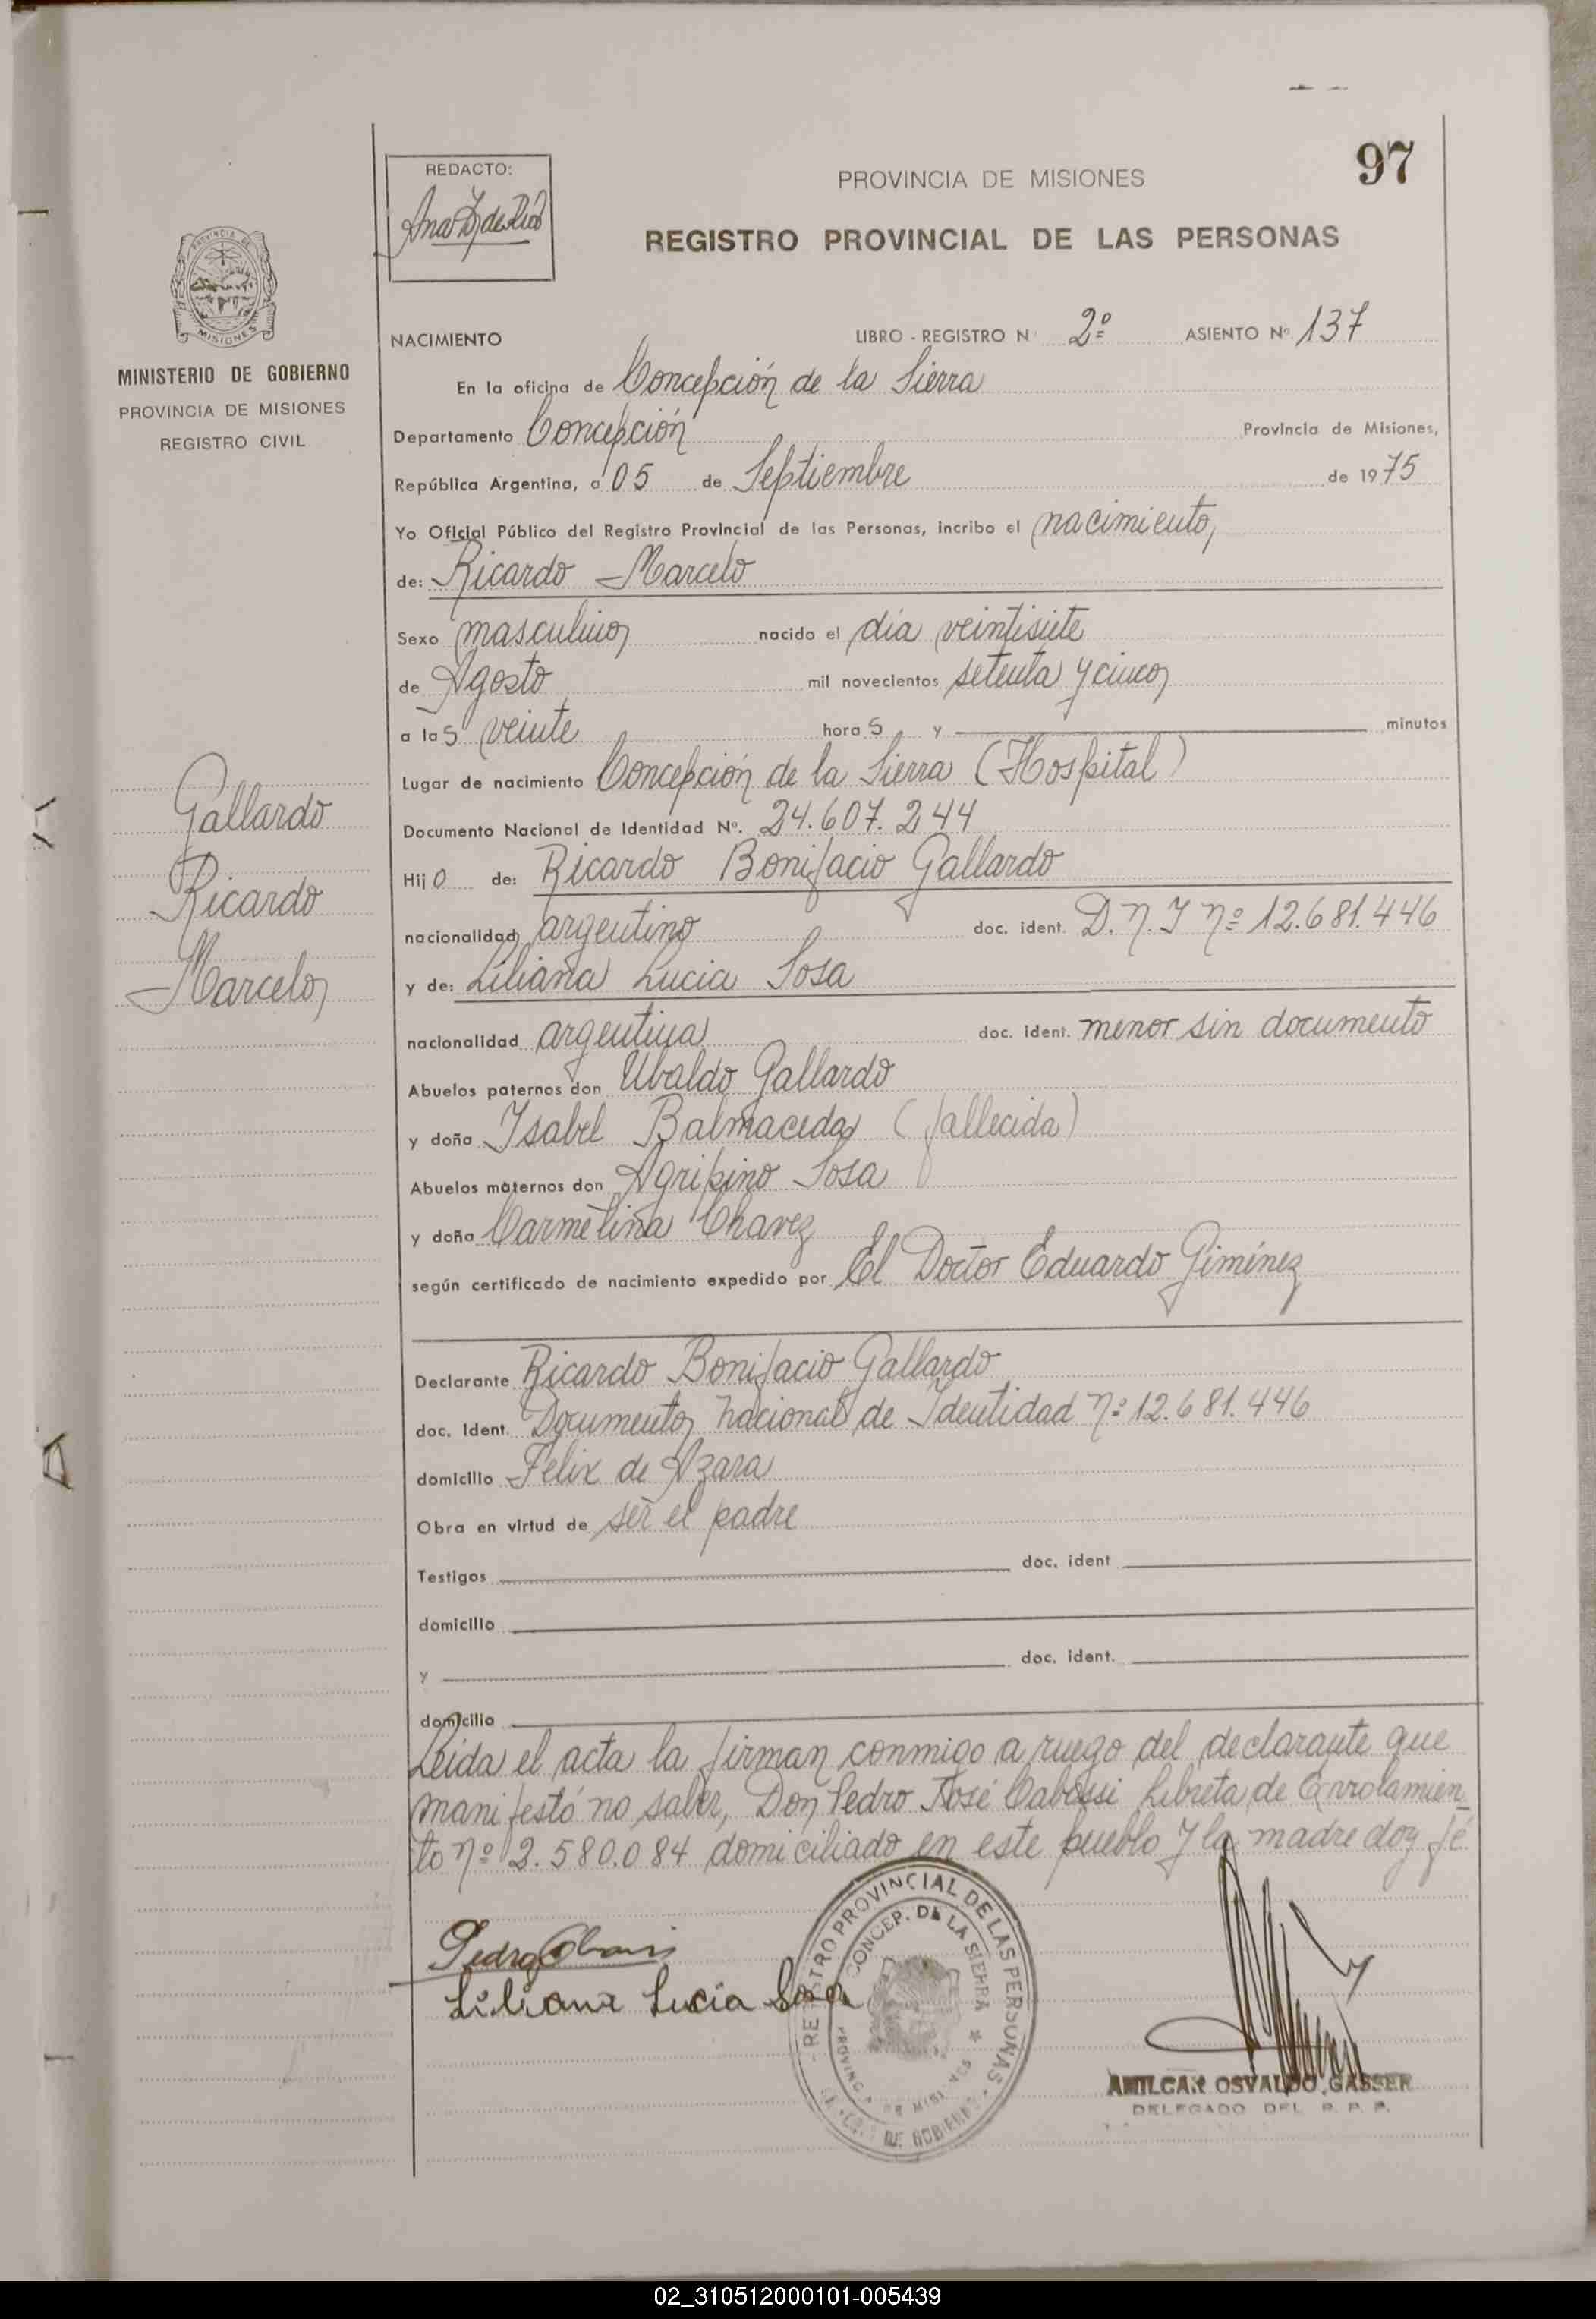 97
REDACTO:
PROVINCIA DE MISIONES
REGISTRO PROVINCIAL DE LAS PERSONAS
MISIONES
MINISTERIO DE GOBIERNO
PROVINCIA DE MISIONES
REGISTRO CIVIL
NACIMIENTO LIBRO - REGISTRO N 2º ASIENTO Nº 137
En la oficina de Concepción de la Sierra
Departamento Concepción Provincia de Misiones,
República Argentina, a 05 de Septiembre de 1975
Yo Oficial Público del Registro Provincial de las Personas, incribo el nacimiento,
de: Ricardo Marcelo
Sexo masculino nacido el día veintisiete
de Agosto mil novecientos setenta y cinco
a las veinte horas y minutos
Lugar de nacimiento Concepción de la Sierra (Hospital)
Documento Nacional de Identidad Nº. 24.607.244
Hijo de: Ricardo Bonifacio Gallardo
nacionalidad argentino doc. ident. D.N.I Nº 12.681.446
y de: Liliana Lucia Sosa
nacionalidad argentina doc. ident. menor sin documento
Abuelos paternos don Ubaldo Gallardo
y doña Isabel Balmaceda (fallecida)
Abuelos maternos don Agripino Sosa
y doña Carmelina Chavez
según certificado de nacimiento expedido por El Doctor Eduardo Giménez
Gallardo
Ricardo
Marcelo
Declarante Ricardo Bonifacio Gallardo
doc. Ident. Documento nacional de Identidad Nº 12.681.446
domicilio Felix de Azara
Obra en virtud de ser el padre
Testigos doc. ident
domicilio
y doc. ident.
domicilio
Leida el acta la firman conmigo a ruego del declarante que
manifestó no saber, Don Pedro José Cabossi Libreta de Enrolamien
to nº 2.580.084 domiciliado en este pueblo y la madre doy fé
Liliana Lucia Sosa
REGISTRO PROVINCIAL DE LAS PERSONAS
CONCEP. DE LA SIERRA
AMILCAR OSVALDO GASSER
DELEGADO DEL R. P. P.
02_310512000101-005439